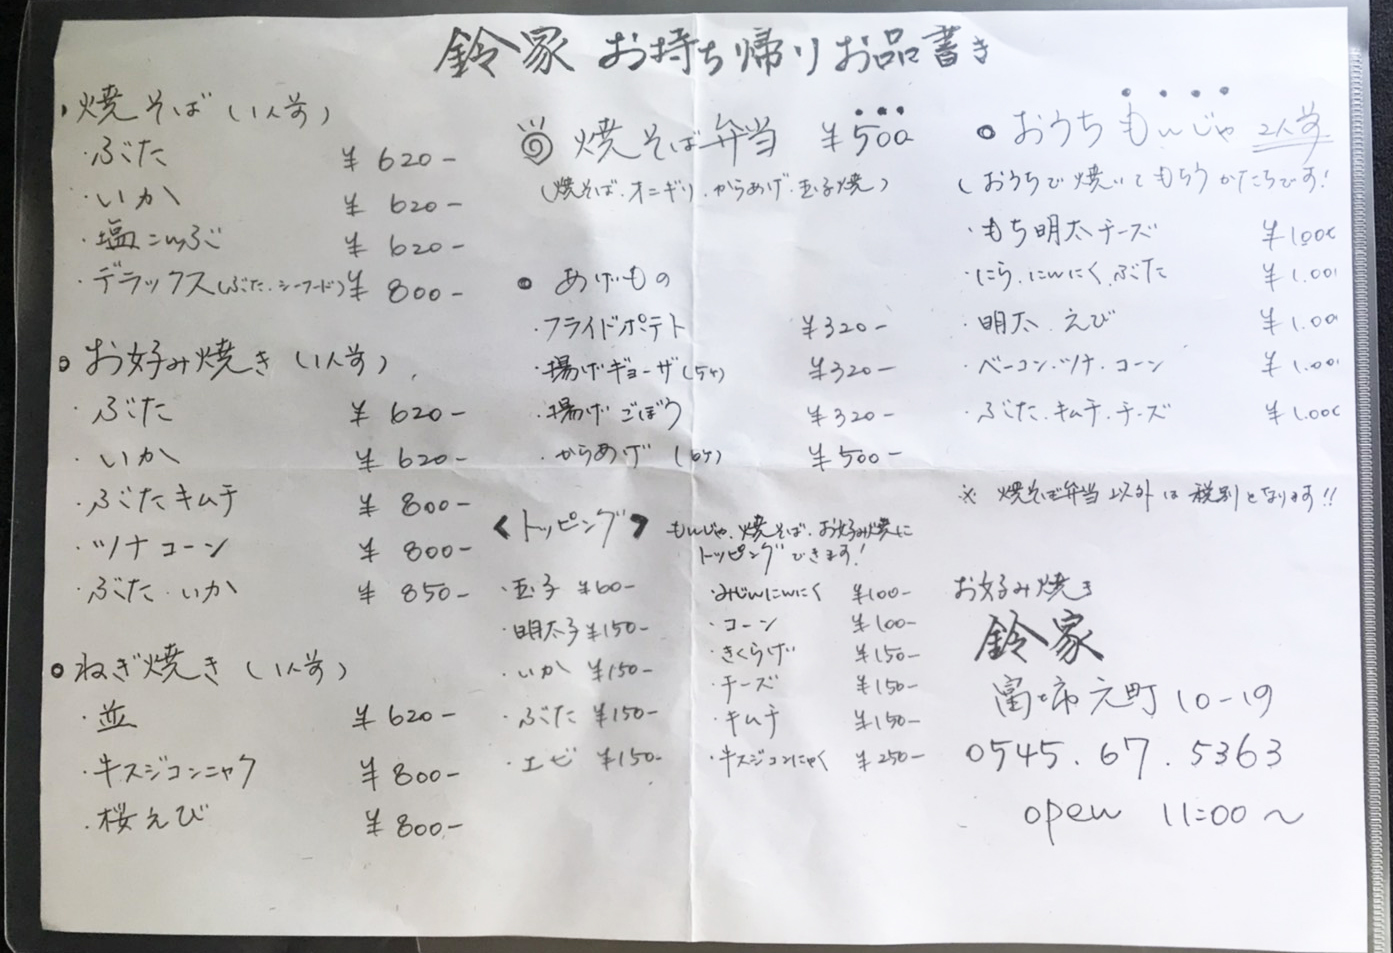 鈴家 お持ち帰りお品書き
・焼そば(1人前)
・ぶた ¥620-
・いか ¥620-
・塩こんぶ ¥620-
・デラックス(ぶた・シーフード) ¥800-
お好み焼き(1人前)
・ぶた ¥620-
・いか ¥620-
・ぶたキムチ ¥800-
・ツナコーン ¥800-
・ぶた・いか ¥850-
ねぎ焼き(1人前)
・並 ¥620-
・牛スジコンニャク ¥800-
・桜えび ¥800-
焼そば弁当 ¥500
(焼そば・オニギリ・からあげ・玉子焼)
あげもの
・フライドポテト ¥320-
・揚げギョーザ(5ヶ) ¥320-
・揚げごぼう ¥320-
・からあげ ¥500-
<トッピング> もんじゃ、焼そば、お好み焼に
トッピングできます!
・玉子 ¥60-
・明太子 ¥150-
・いか ¥150-
・ぶた ¥150-
・エビ ¥150-
・みじんにんにく ¥100-
・コーン ¥100-
・きくらげ ¥150-
・チーズ ¥150-
・キムチ ¥150-
・牛スジコンにゃく ¥250-
おうちもんじゃ 2人前
(おうちで焼いてもらうかたちです!
・もち明太チーズ ¥1.000
・にら、にんにく、ぶた ¥1.00
・明太・えび ¥1.00
・ベーコン・ツナ・コーン ¥1.00
・ぶた・キムチ・チーズ ¥1.000
※ 焼そば弁当以外は税別となります!!
お好み焼き
鈴家
富士市元町10-19
0545.67.5363
open 11:00～